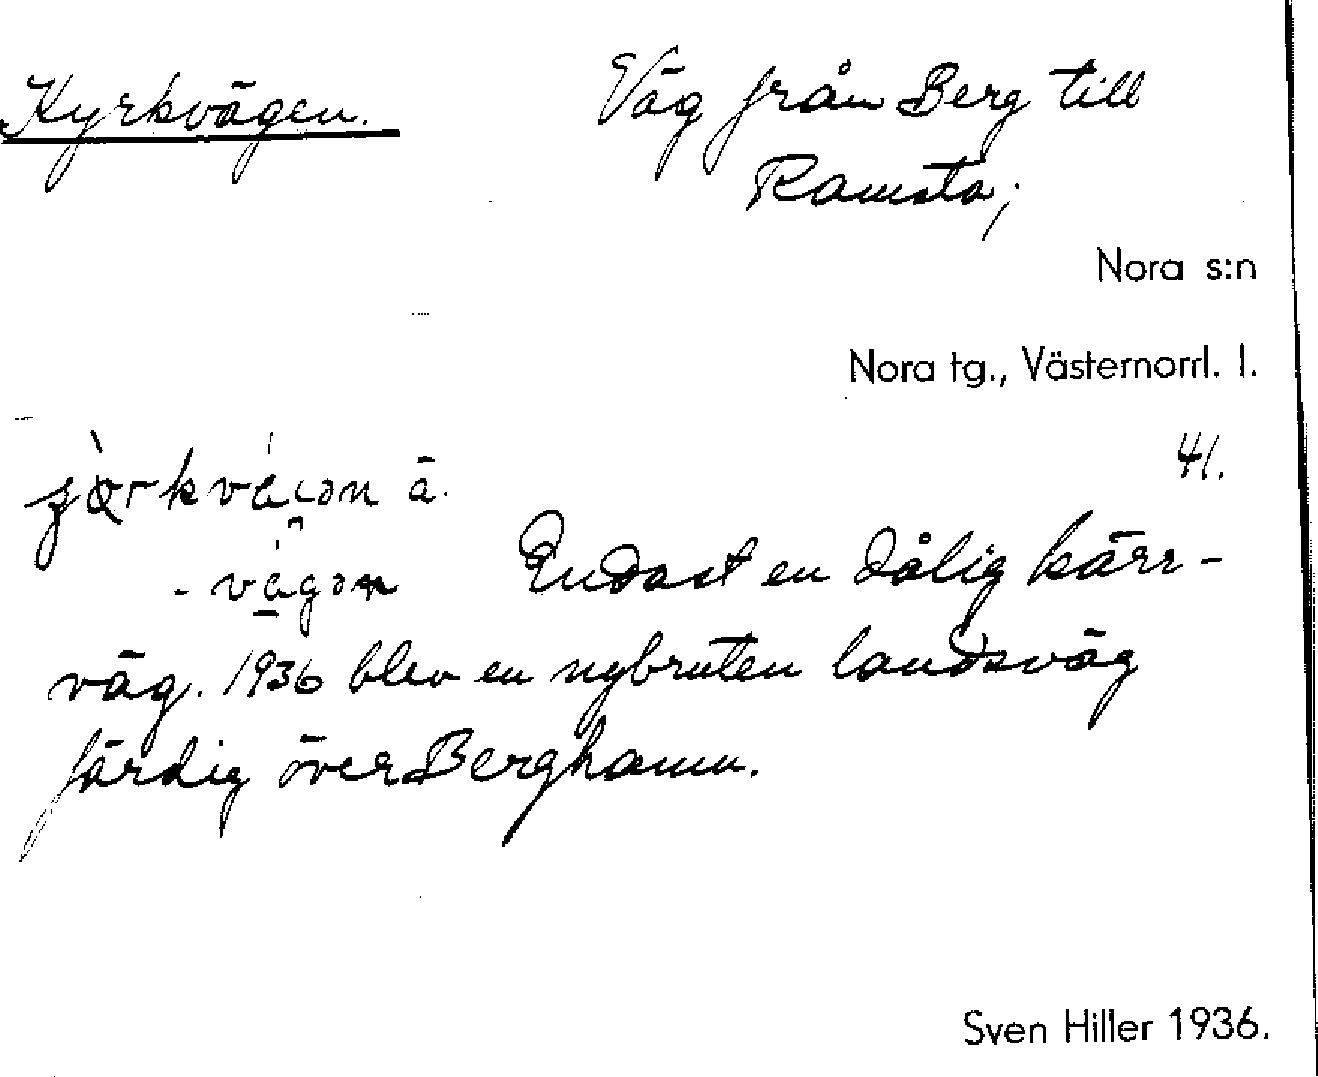 Kyrkvägen.
Väg från Berg till
Ramsta;
Nora s:n
Nora tg., Västernorrl. l.
41.
Endast en dålig kärr-
väg. 1936 blev en nybruten landsväg
färdig över Berghamn.
Sven Hiller 1936.